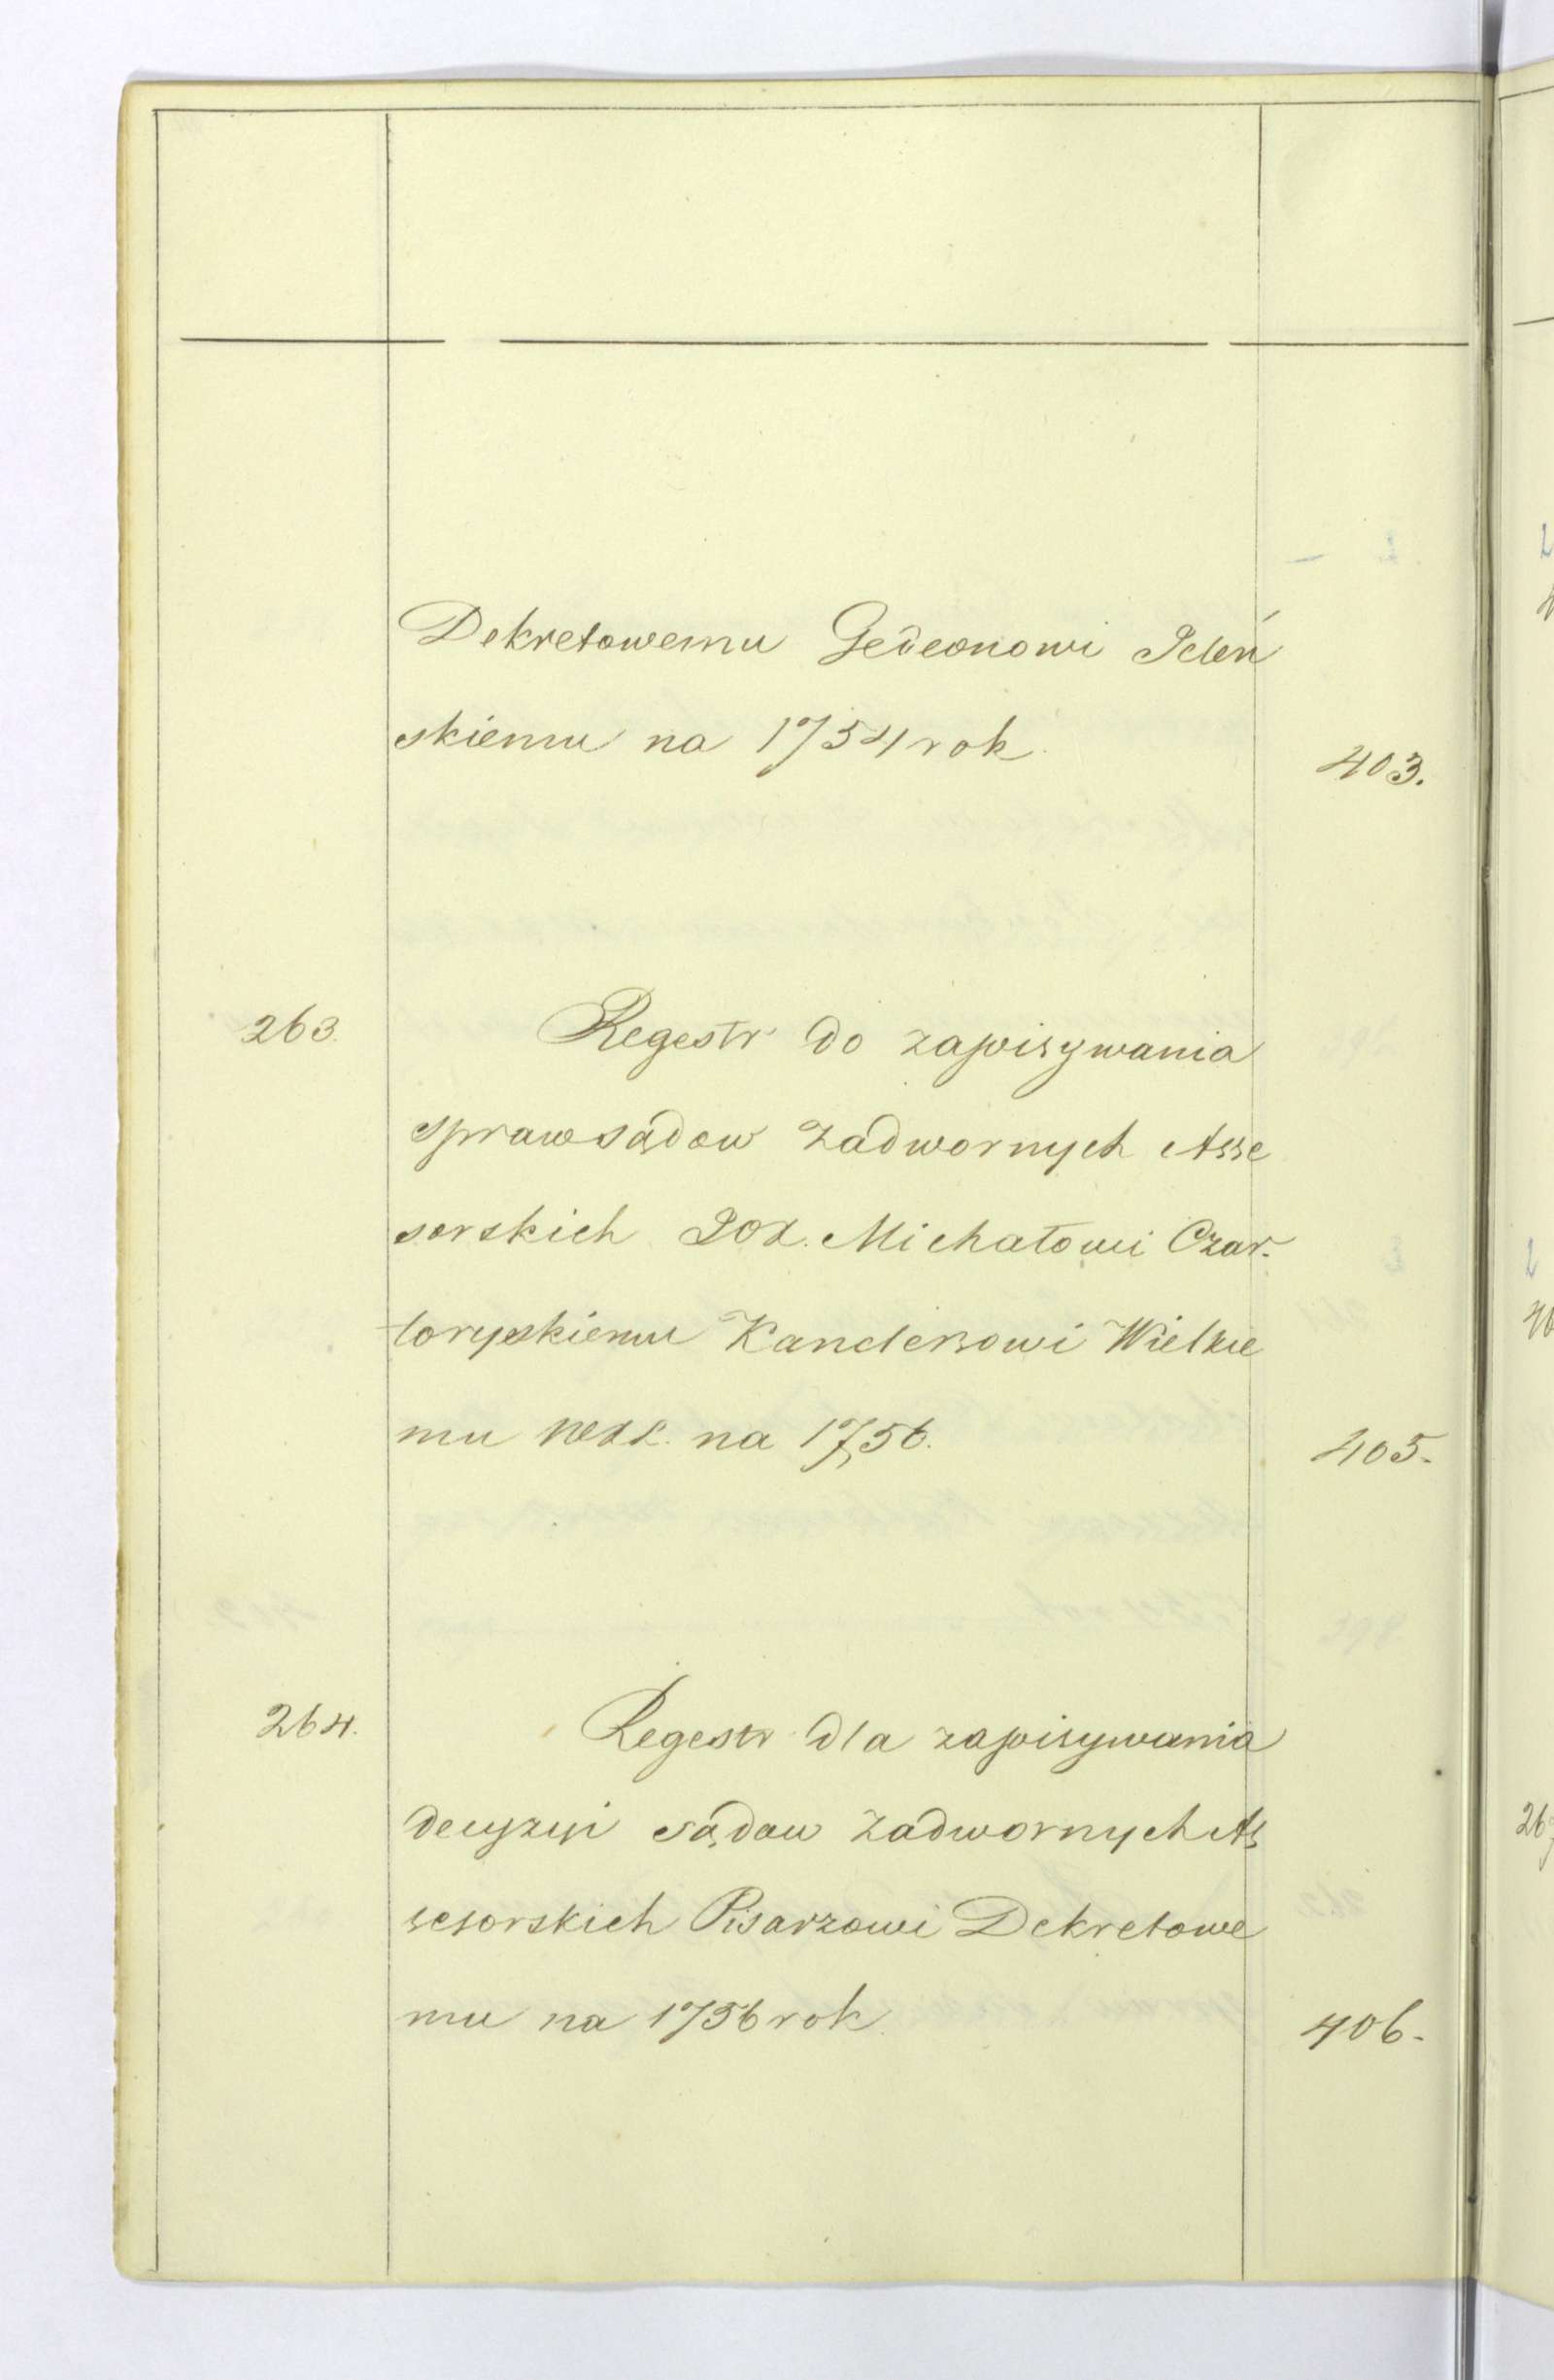 Dekretowemu Gedeonowi Jeleń
skiemu na 1754 rok.
403.
263. Regestr do zapisywania
spraw sądow zadwornych Asse
sorskich Michałowi Czar-
toryskiemu Kanclerzowi Wielkie
mu WXL. na 1756.
405.
264. Regestr dla zapisywania
decyzyi sądow zadwornych As
sesorskich Pisarzowi Dekretowe
mu na 1756 rok.
406.